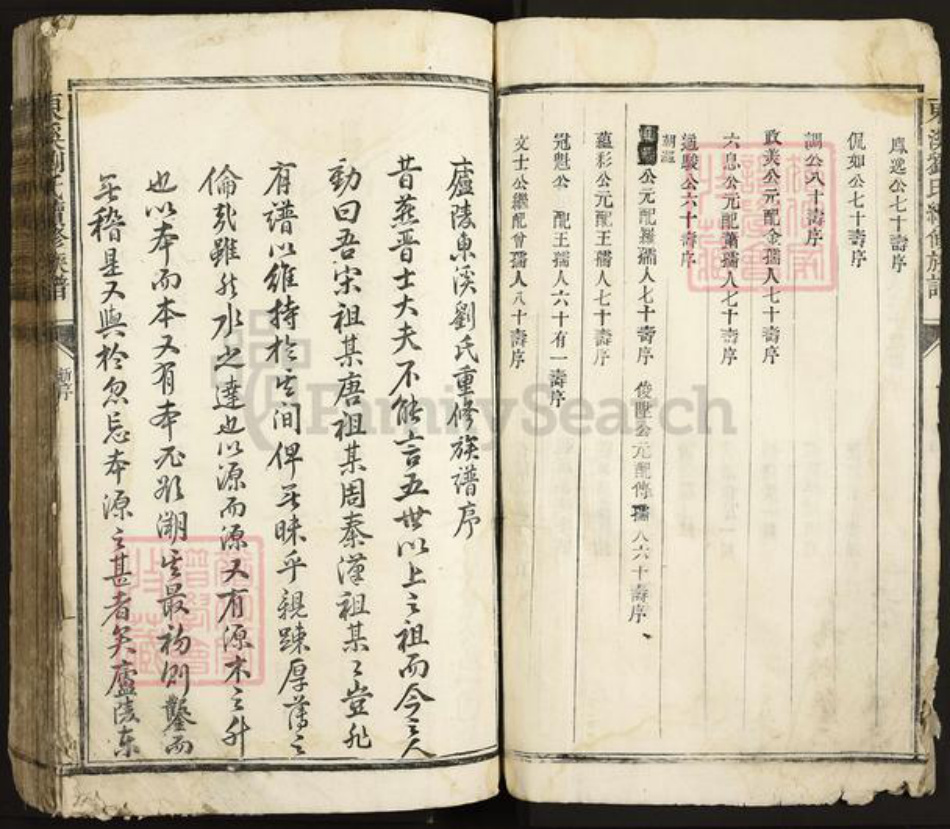 東溪劉氏續修族譜
鳳逸公七十壽序
侃如公七十壽序
調公八十壽序
敢美公元配金孺人七十壽序
六息公元配蕭孺人七十壽序
通駿公六十壽序
公元配羅孺人七十壽序 俊墅公元配傅孺人六十壽序
蘊彩公元配王孺人七十壽序
冠魁公 配王孺人六十有一壽序
文士公繼配曾孺人八十壽序
廬陵東溪劉氏重修族譜序
昔燕晉士大夫不能言五世以上之祖而今之人
動曰吾宋祖某唐祖某周秦漢祖某某豈非
有譜以維持於其間俾無昧乎親疎厚薄之
倫哉雖然水之達也以源而源又有源木之升
也以本而本又有本必欲溯其最初則鑿而
無稽是又與於忽忘本源之甚者矣廬陵東
東溪劉氏續修族譜
新序
FamilySearch